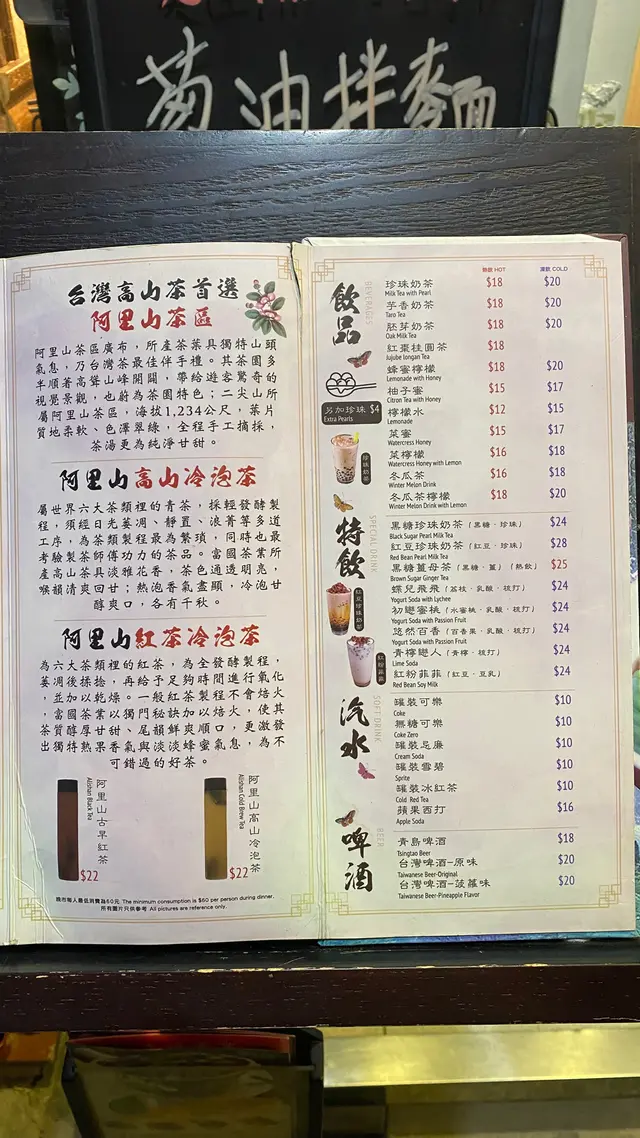 蔥油拌麵
台灣高山茶首選
阿里山茶區
阿里山茶區廣布，所產茶葉具獨特山頭
氣息，乃台灣茶最佳伴手禮。其茶園多
半順著高聳山峰開闢，帶給遊客驚奇的
視覺景觀，也蔚為茶園特色；二尖山所
屬阿里山茶區，海拔1,234公尺，葉片
質地柔軟、色澤翠綠，全程手工摘採，
茶湯更為純淨甘甜。
阿里山高山冷泡茶
屬世界六大茶類裡的青茶，採輕發酵製
程，須經日光萎凋、靜置、浪菁等多道
工序，為茶類製程最為繁瑣，同時也最
考驗製茶師傅功力的茶品。富國茶業所
產高山茶具淡雅花香，茶色通透明亮，
喉韻清爽回甘；熱泡香氣盡顯，冷泡甘
醇爽口，各有千秋。
阿里山紅茶冷泡茶
為六大茶類裡的紅茶，為全發酵製程，
萎凋後揉捻，再給予足夠時間進行氧化
，並加以乾燥。一般紅茶製程不會焙火
，富國茶業以獨門秘訣加以焙火，使其
茶質醇厚甘甜、尾韻鮮爽順口，更激發
出獨特熟果香氣與淡淡蜂蜜氣息，為不
可錯過的好茶。
阿里山古早紅茶
Alishan Black Tea
$22
阿里山高山冷泡茶
Alishan Cold Brew Tea
$22
晚市每人最低消費為60元. The minimum consumption is $60 per person during dinner.
所有圖片只供參考 All pictures are reference only.
飲品
BEVERAGES
熱飲 HOT 凍飲 COLD
珍珠奶茶 $18 $20
Milk Tea with Pearl
芋香奶茶 $18 $20
Taro Tea
胚芽奶茶 $18 $20
Oak Milk Tea
紅棗桂圓茶 $18
Jujube longan Tea
蜂蜜檸檬 $18 $20
Lemonade with Honey
柚子蜜 $15 $17
Citron Tea with Honey
檸檬水 $12 $15
Lemonade
菜蜜 $15 $17
Watercress Honey
菜檸檬 $16 $18
Watercress Honey with Lemon
冬瓜茶 $16 $18
Winter Melon Drink
冬瓜茶檸檬 $18 $20
Winter Melon Drink with Lemon
另加珍珠 $4
Extra Pearls
珍珠奶茶
特飲
SPECIAL DRINK
黑糖珍珠奶茶（黑糖、珍珠） $24
Black Sugar Pearl Milk Tea
紅豆珍珠奶茶（紅豆、珍珠） $28
Red Bean Pearl Milk Tea
黑糖薑母茶（黑糖、薑）（熱飲） $25
Brown Sugar Ginger Tea
蝶兒飛飛（荔枝、乳酸、梳打） $24
Yogurt Soda with Lychee
初戀蜜桃（水蜜桃、乳酸、梳打） $24
Yogurt Soda with Passion Fruit
悠然百香（百香果、乳酸、梳打） $24
Yogurt Soda with Passion Fruit
青檸戀人（青檸、梳打） $24
Lime Soda
紅粉菲菲（紅豆、豆乳） $24
Red Bean Soy Milk
紅豆珍珠奶茶
紅粉菲菲
汽水
SOFT DRINK
罐裝可樂 $10
Coke
無糖可樂 $10
Coke Zero
罐裝忌廉 $10
Cream Soda
罐裝雪碧 $10
Sprite
罐裝冰紅茶 $10
Cold Red Tea
蘋果西打 $16
Apple Soda
啤酒
BEER
青島啤酒 $18
Tsingtao Beer
台灣啤酒-原味 $20
Taiwanese Beer-Original
台灣啤酒-菠蘿味 $20
Taiwanese Beer-Pineapple Flavor